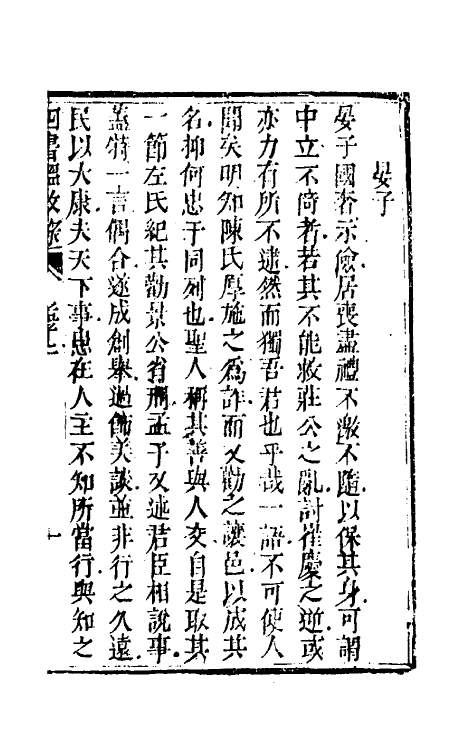 晏子
晏子國奢示儉居喪盡禮不激不隨以保其身可謂
中立不倚者若其不能救莊公之亂討崔慶之逆或
亦力有所不逮然而獨吾君也乎哉一語不可使人
聞矣明知陳氏厚施之為詐而又勸之讓邑以成其
名抑何忠于同列也聖人稱其善與人交自是取其
一節左氏紀其勸景公省刑孟子又述君臣相說事
蓋特一言偶合遂成創舉過飾美談並非行之久遠
民以大康夫天下事患在人主不知所當行與知之
四書
十